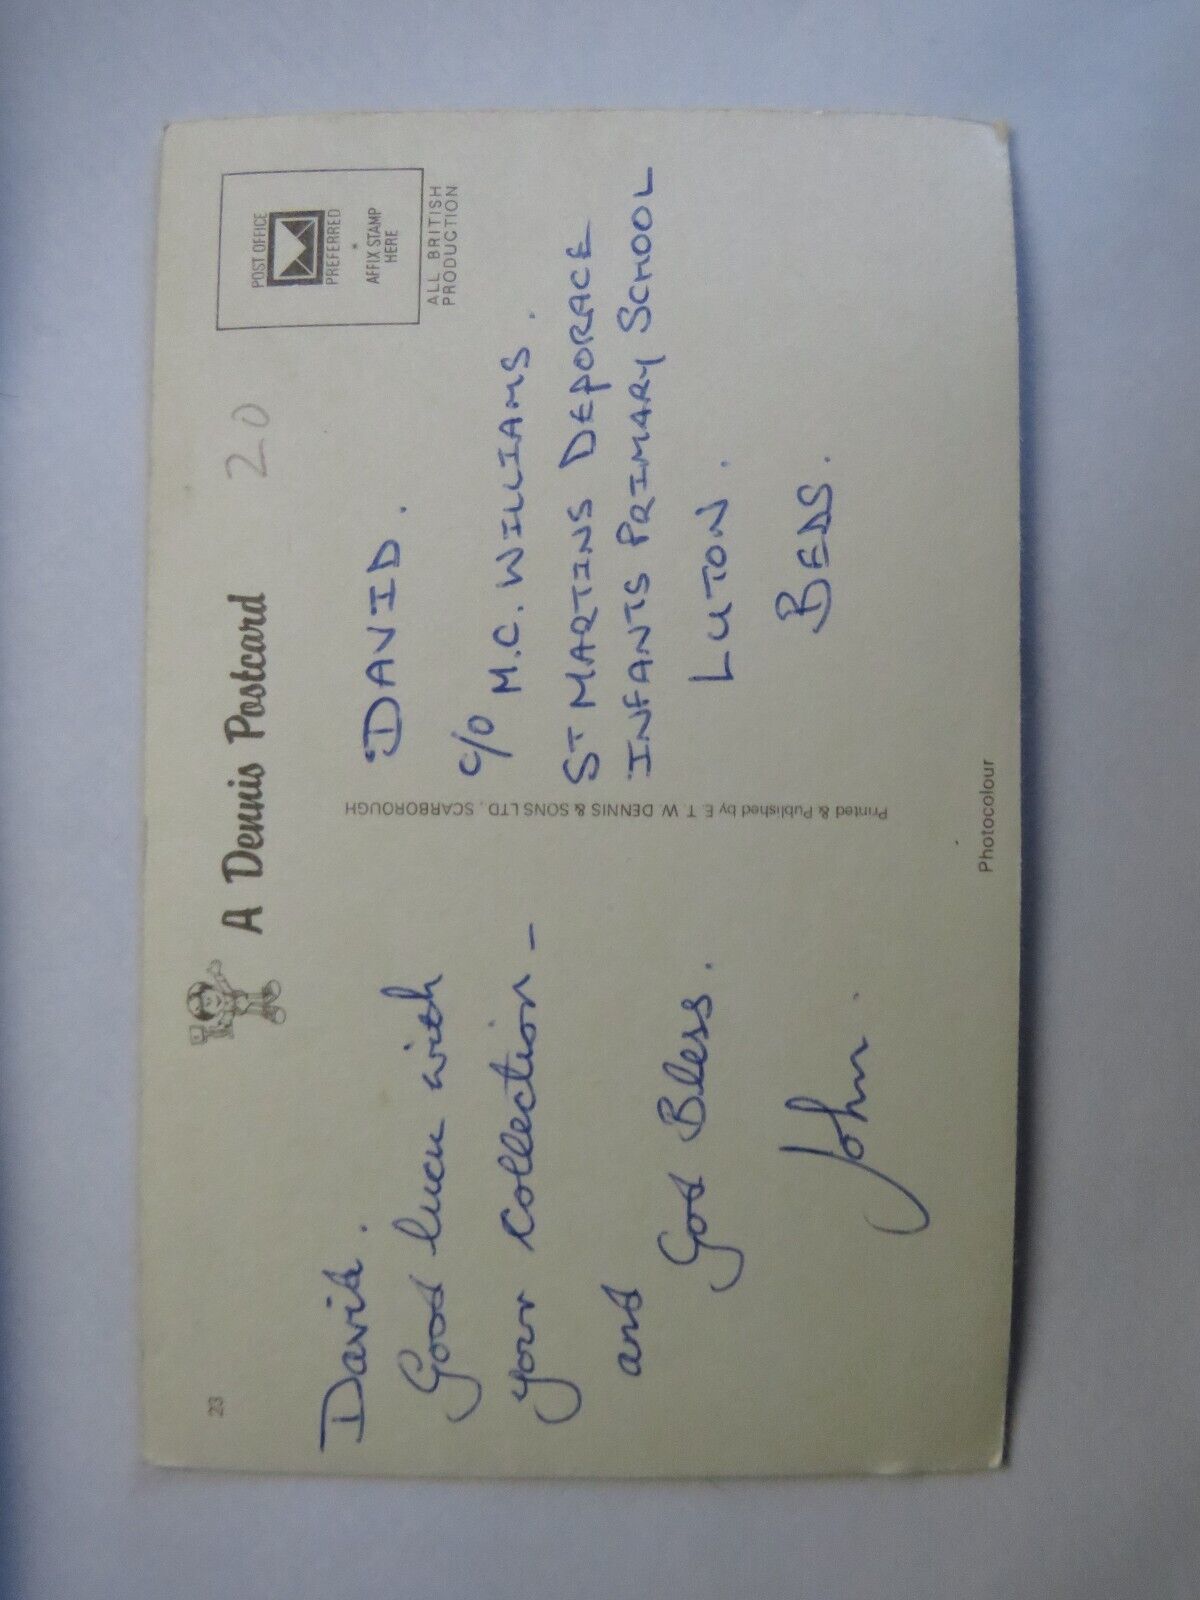 23
A Dennis Postcard
20
POST OFFICE
PREFERRED
*
AFFIX STAMP
HERE
ALL BRITISH
PRODUCTION
David.
Good luck with
your collection -
and
God Bless.
John.
Printed & Published by E. T. W. DENNIS & SONS LTD., SCARBOROUGH
DAVID.
c/o M.C. WILLIAMS.
ST MARTINS DEPORACE
INFANTS PRIMARY SCHOOL
LUTON.
BEDS.
Photocolour